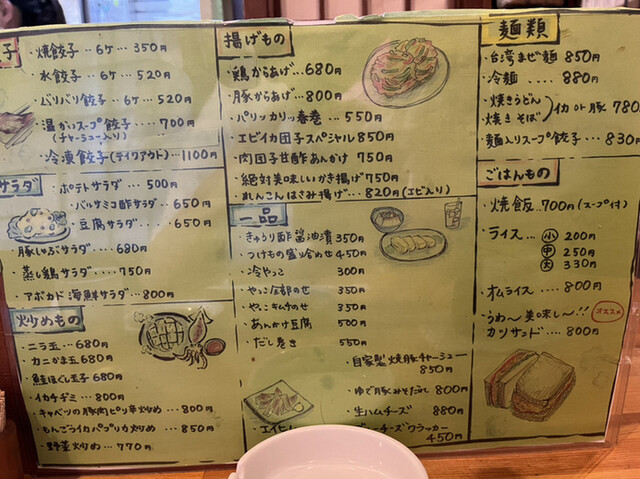 子
・焼餃子‥6ケ‥350円
水餃子‥6ケ…520円
・バリバリ餃子‥6ケ…520円
・温かいスープ餃子‥‥700円
(チャーシュー入り)
・冷凍餃子(テイクアウト)…1100円
サラダ
・ポテトサラダ…500円
・バルサミコ酢サラダ‥650円
・豆腐サラダ…650円
・豚しゃぶサラダ…680円
・蒸し鶏サラダ‥‥750円
・アボカド海鮮サラダ…800円
炒めもの
・ニラ玉…680円
・カニかま玉680円
・鮭ほぐし玉子680円
・イカチヂミ…800円
・キャベツの豚肉ピリ辛炒め…800円
・もんごうイカパプリカ炒め…850円
・野菜炒め…770円
揚げもの
・鶏からあげ…680円
・豚からあげ…800円
・パリッカリッ春巻…550円
・エビイカ団子スペシャル850円
・肉団子甘酢あんかけ750円
・絶対美味しいかき揚げ750円
・れんこんはさみ揚げ…820円(エビ入り)
一品
・きゅうり酢醤油漬350円
・つけもの盛り合わせ450円
・冷やっこ300円
・やっこ全部のせ350円
・やっこキムチのせ350円
・あんかけ豆腐500円
・だし巻き550円
・自家製焼豚チャーシュー
850円
・ゆで豚みそだれ800円
・生ハムチーズ880円
チーズクラッカー
450円
麺類
・台湾まぜ麺850円
・冷麺….880円
・焼きうどん
・焼きそば
イカor豚780
・麺入りスープ餃子…830円
ごはんもの
・焼飯‥700円(スープ付)
・ライス‥小200円
中250円
大330円
・オムライス….800円
・うわ〜美味し〜!!
オススメ
カリサンド…800円